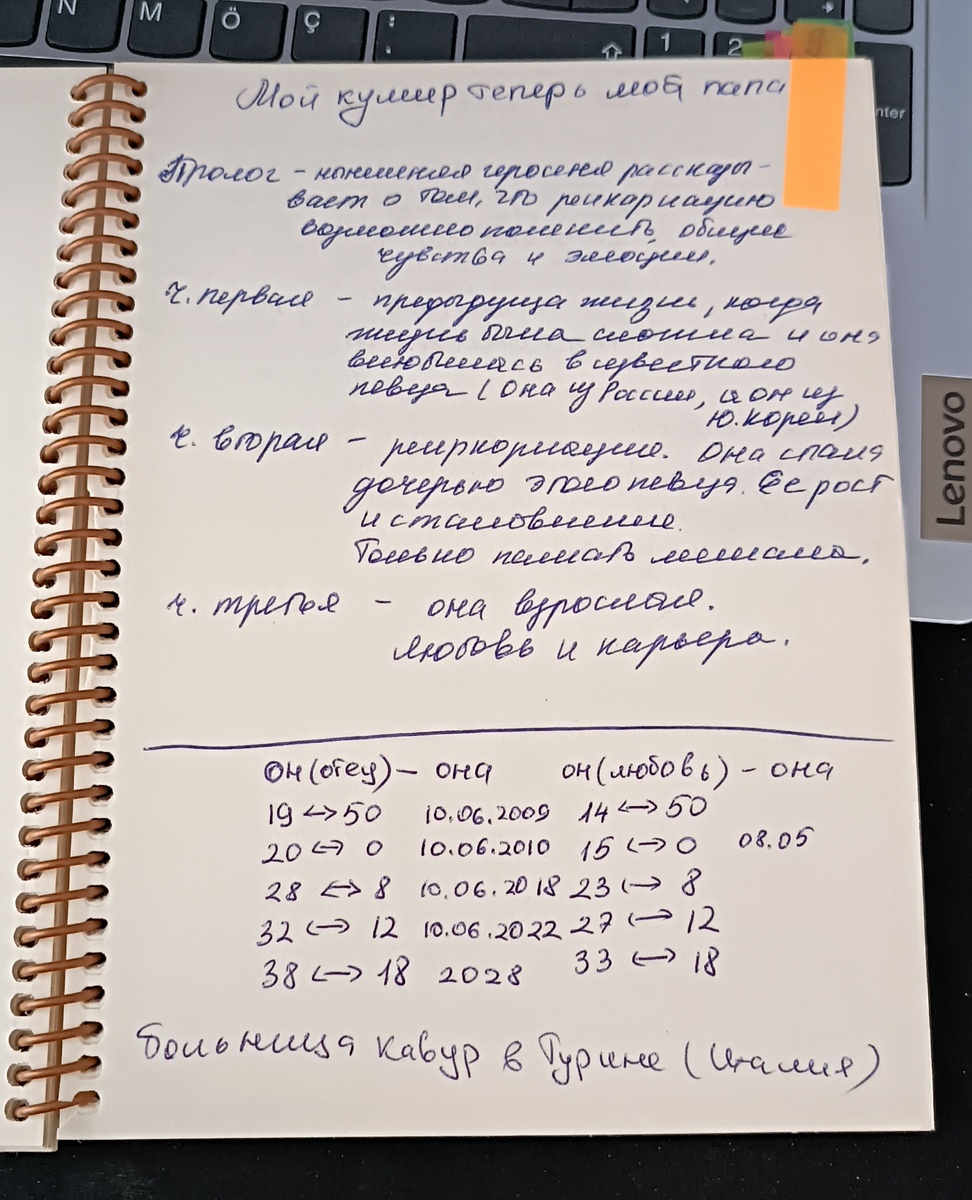 N
M
Ö
Ç
:
;
1
2
enter
Мой кумир теперь мой папа
Пролог - нынешняя героиня рассказы-
вает о том, что реинкарнацию
возможно поменить, общие
чувства и эмоции.
Ч. первая - предыдуща жизнь, когда
жизнь была сложна и она
влюбилась в известного
певца (она из России, а он из
Ю. Кореи)
ч. вторая - Она стала
дочерью этого певца. Ее рост
и становление.
Только память мешала.
ч. третья - она взрослая.
любовь и карьера.
Lenovo
он (отец) - она он (любовь) - она
19 ↔ 50 10.06.2009 14 ↔ 50
20 ↔ 0 10.06.2010 15 ↔ 0 08.05
28 ↔ 8 10.06.2018 23 ↔ 8
32 ↔ 12 10.06.2022 27 ↔ 12
38 ↔ 18 2028 33 ↔ 18
Больница Кавур в Турине (Италия)